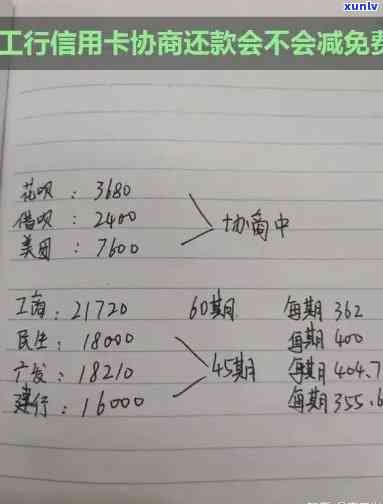 xunlv
工行信用卡协商还款会不会减免费
花呗：3680
借呗：2400
美团：7600
协商中
工商：21720 60期 每期 362
民生：18000 每期 400
广发：18210 45期 每期 404.7
建行：16000 每期 355.6